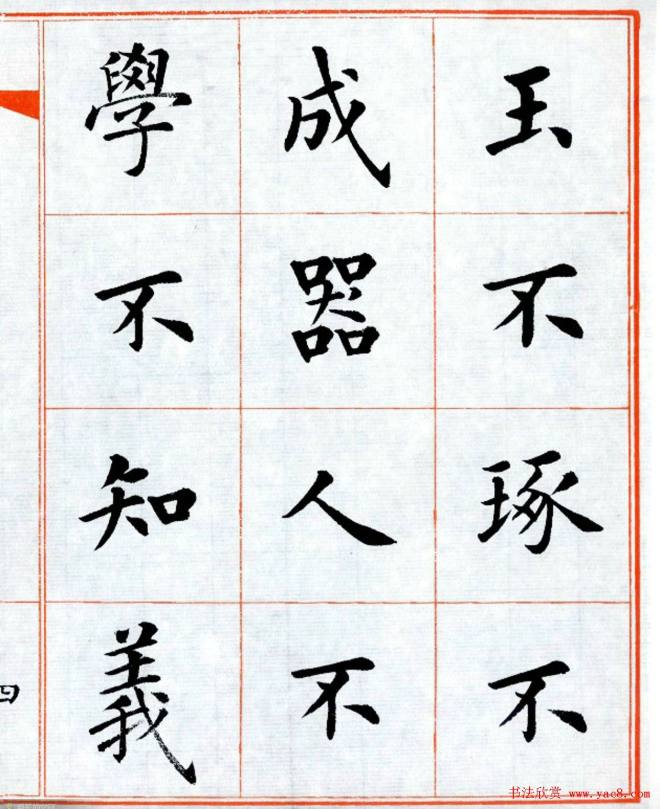 玉不琢不
成器人不
學不知義
四
书法欣赏 www.yac8.com